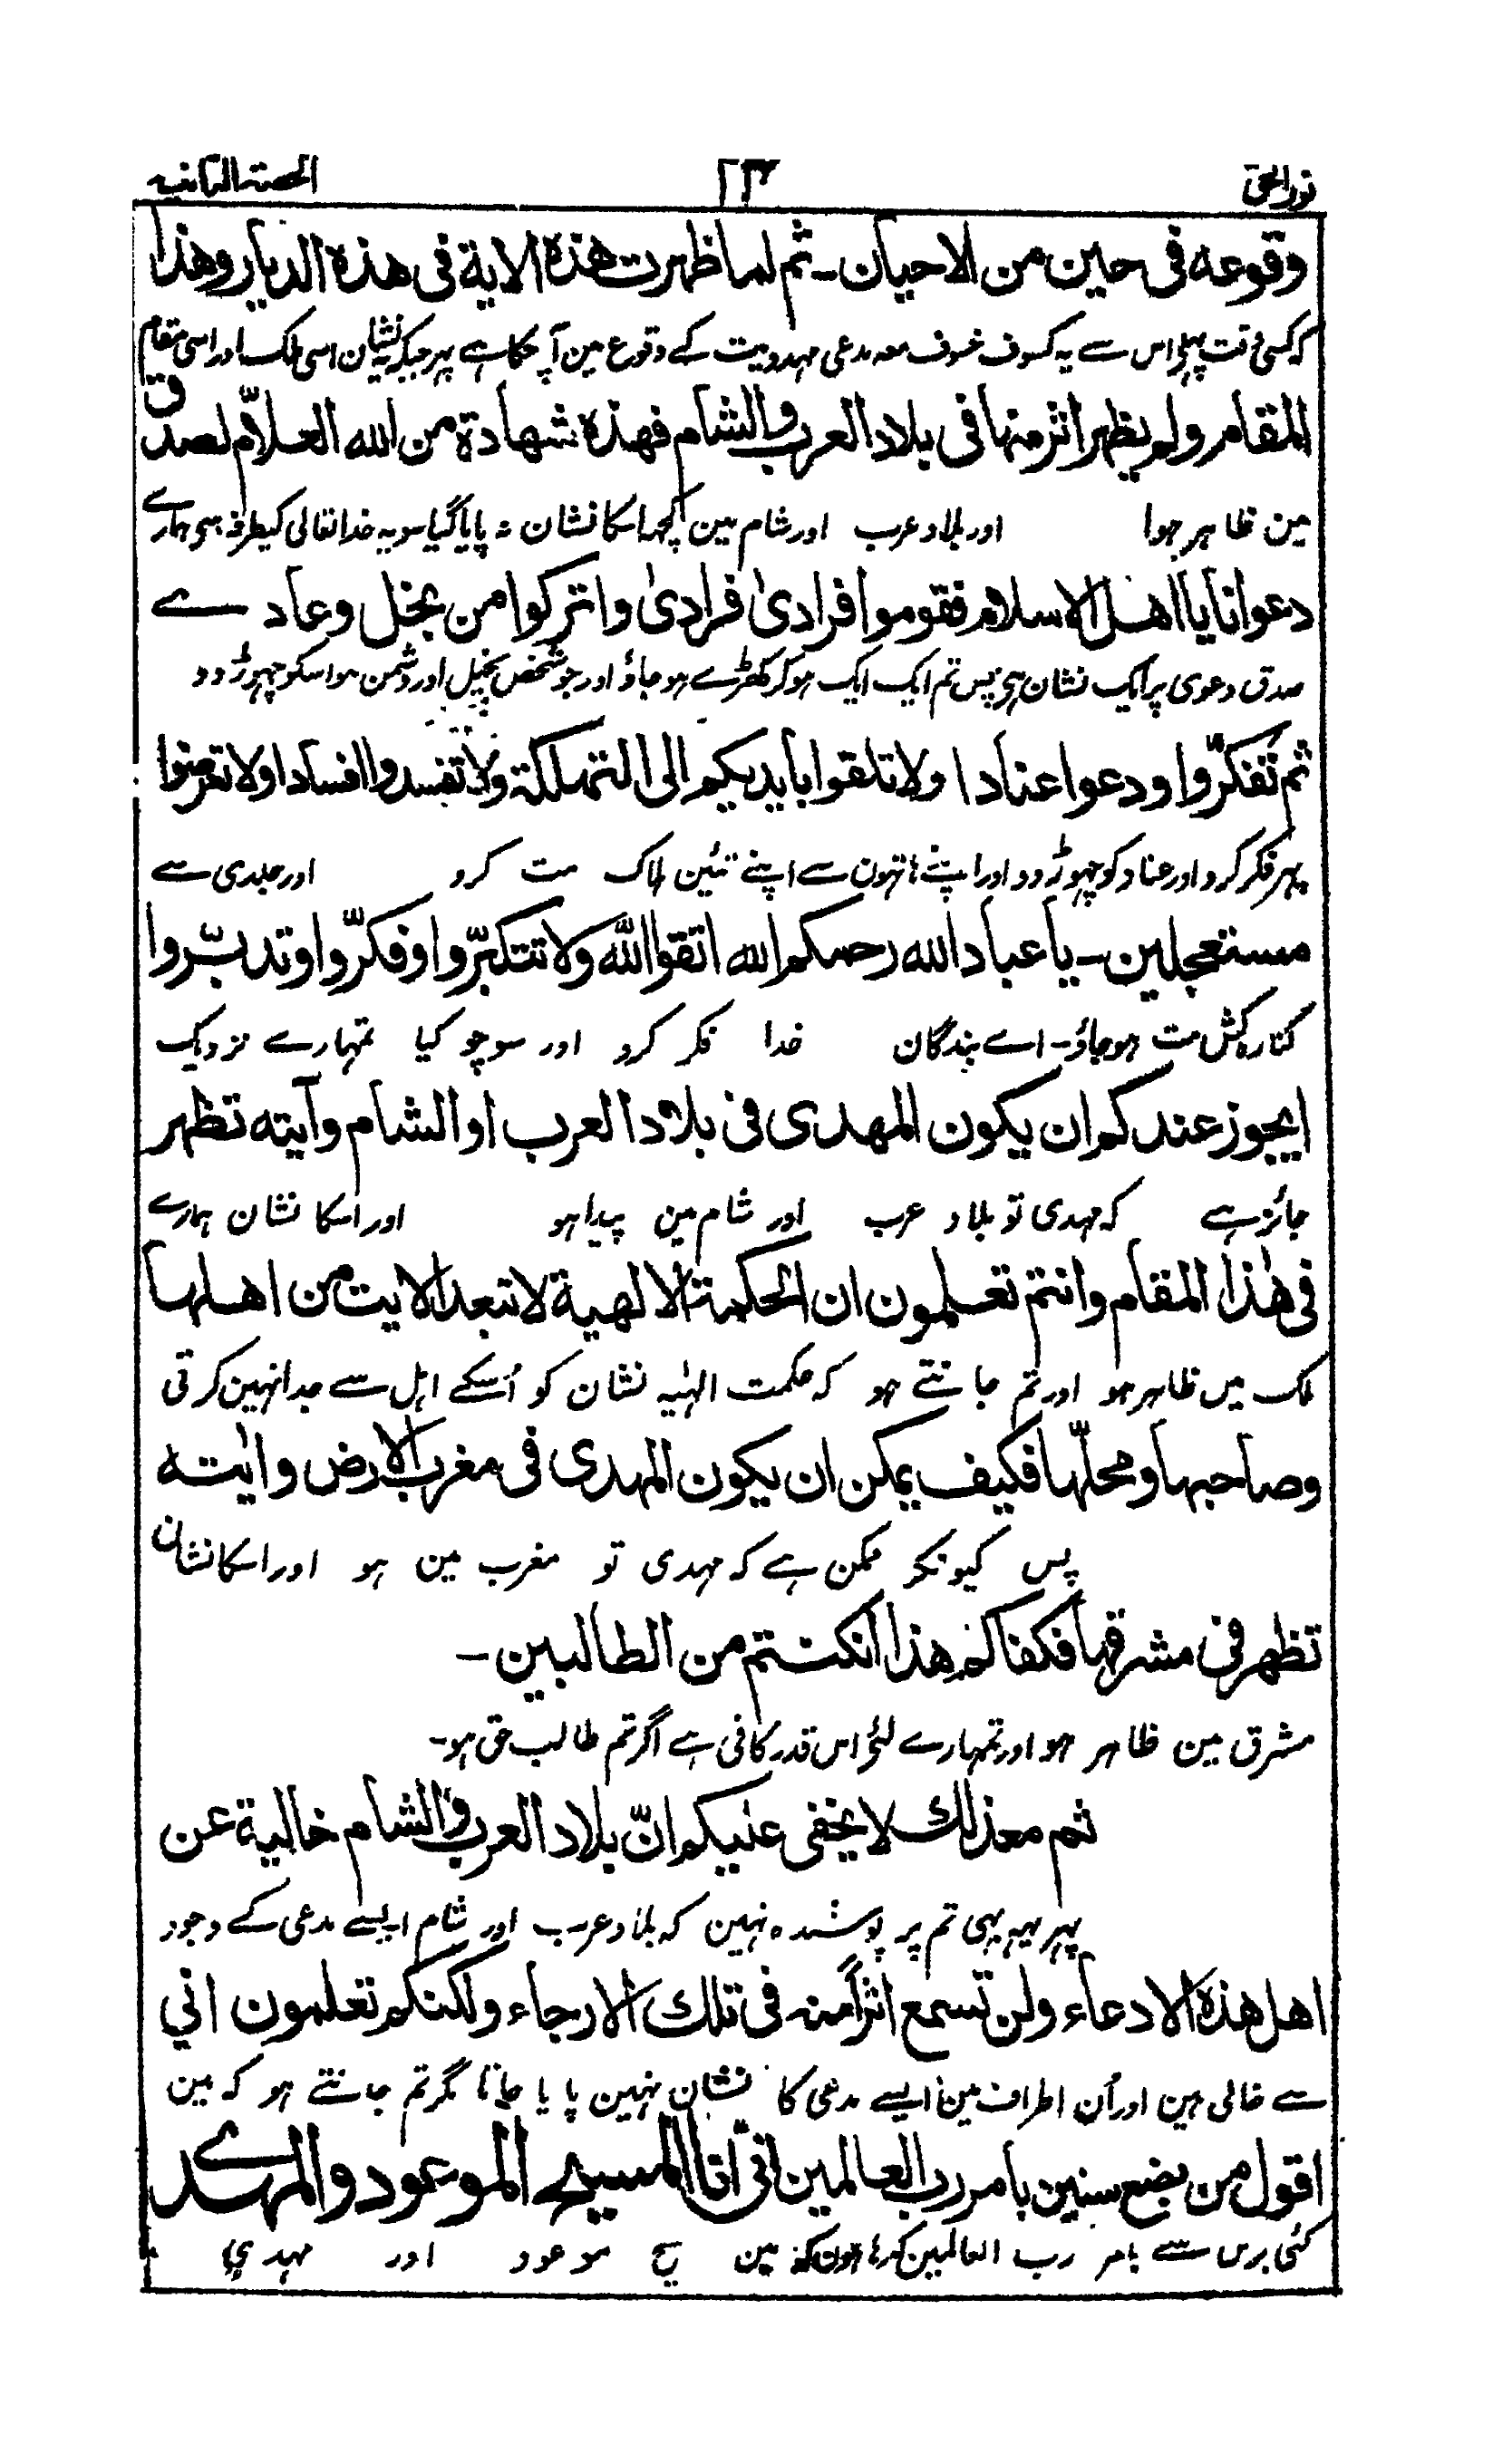 نور الحق ٢٣ الحصة الثانية
وقوعه فى حين من الاحيان۔ ثم لما ظهرت هذه الاية فى هذه الديار وهذا
کہ کسی وقت پہلے اس سے یہ کسوف خسوف معہ مدعی مہدویت کے وقوع مین آچکا ہے پہر جبکہ یہ نشان اسی ملک اور اسی مقام
المقام ولم يظهر اثر منها فى بلاد العرب والشام فهذه شهادة من الله العلّام لصدق
مین ظاہر ہوا اور بلاد عرب اور شام مین کچہہ اسکا نشان نہ پایا گیا سو یہ خدا تعالی کیطرف سے ہمارے
دعوانا يا اهل الاسلام فقوموا فرادىٰ فرادىٰ واتركوا من بخل وعادے
صدق دعوی پر ایک نشان ہے پس تم ایک ایک ہو کر کھڑے ہو جاؤ اور جو شخص بخیل اور دشمن ہو اسکو چہوڑ دو
ثم تفكّروا ودعوا عنادا ولا تلقوا بايديكم الى التهلكة ولا تفسدوا افسادا ولا تعرضوا
پہر فکر کرو اور عناد کو چہوڑ دو اور اپنے ہاتہون سے اپنے تئین ہلاک مت کرو اور جلدی سے
مستعجلين۔ يا عباد الله رحمكم الله اتقوا الله ولا تتكبّروا وفكّروا وتدبّروا
کنارہ کش مت ہو جاؤ۔ اے بندگان خدا فکر کرو اور سوچو کیا تمہارے نزدیک
ايجوز عندكم ان يكون المهدى فى بلاد العرب او الشام وآيته تظهر
جائز ہے کہ مہدی تو بلاد عرب اور شام مین پیدا ہو اور اسکا نشان ہمارے
فى هٰذا المقام وانتم تعلمون ان الحكمة الالهية لا تبعد الايت من اهلها
ملک میں ظاہر ہو اور تم جانتے ہو کہ حکمت الہٰیہ نشان کو اُسکے اہل سے جدا نہین کرتی
وصاحبها ومحلّها فكيف يمكن ان يكون المهدى فى مغرب الارض وايٰته
پس کیونکر ممکن ہے کہ مہدی تو مغرب مین ہو اور اسکا نشان
تظهر فى مشرقها فكفاكم هذا انكنتم من الطالبين۔
مشرق مین ظاہر ہو اور تمہارے لئے اس قدر کافی ہے اگر تم طالب حق ہو۔
ثم معذلك لا يخفى عليكم انّ بلاد العرب والشام خالية عن
پہر یہہ بہی تم پر پوشیدہ نہین کہ بلاد عرب اور شام ایسے مدعی کے وجود
اهل هذه الادعاء ولن تسمع اثرًا منه فى تلك الارجاء ولكنكم تعلمون انى
سے خالی ہین اور اُن اطراف مین ایسے مدعی کا نشان نہین پایا جاتا مگر تم جانتے ہو کہ مین
اقول من بضع سنين بامر رب العالمين انّى انا المسيح الموعود والمهدے
کئی برس سے بامر رب العالمین کہہ رہا ہون کہ مین مسیح موعود اور مہدی